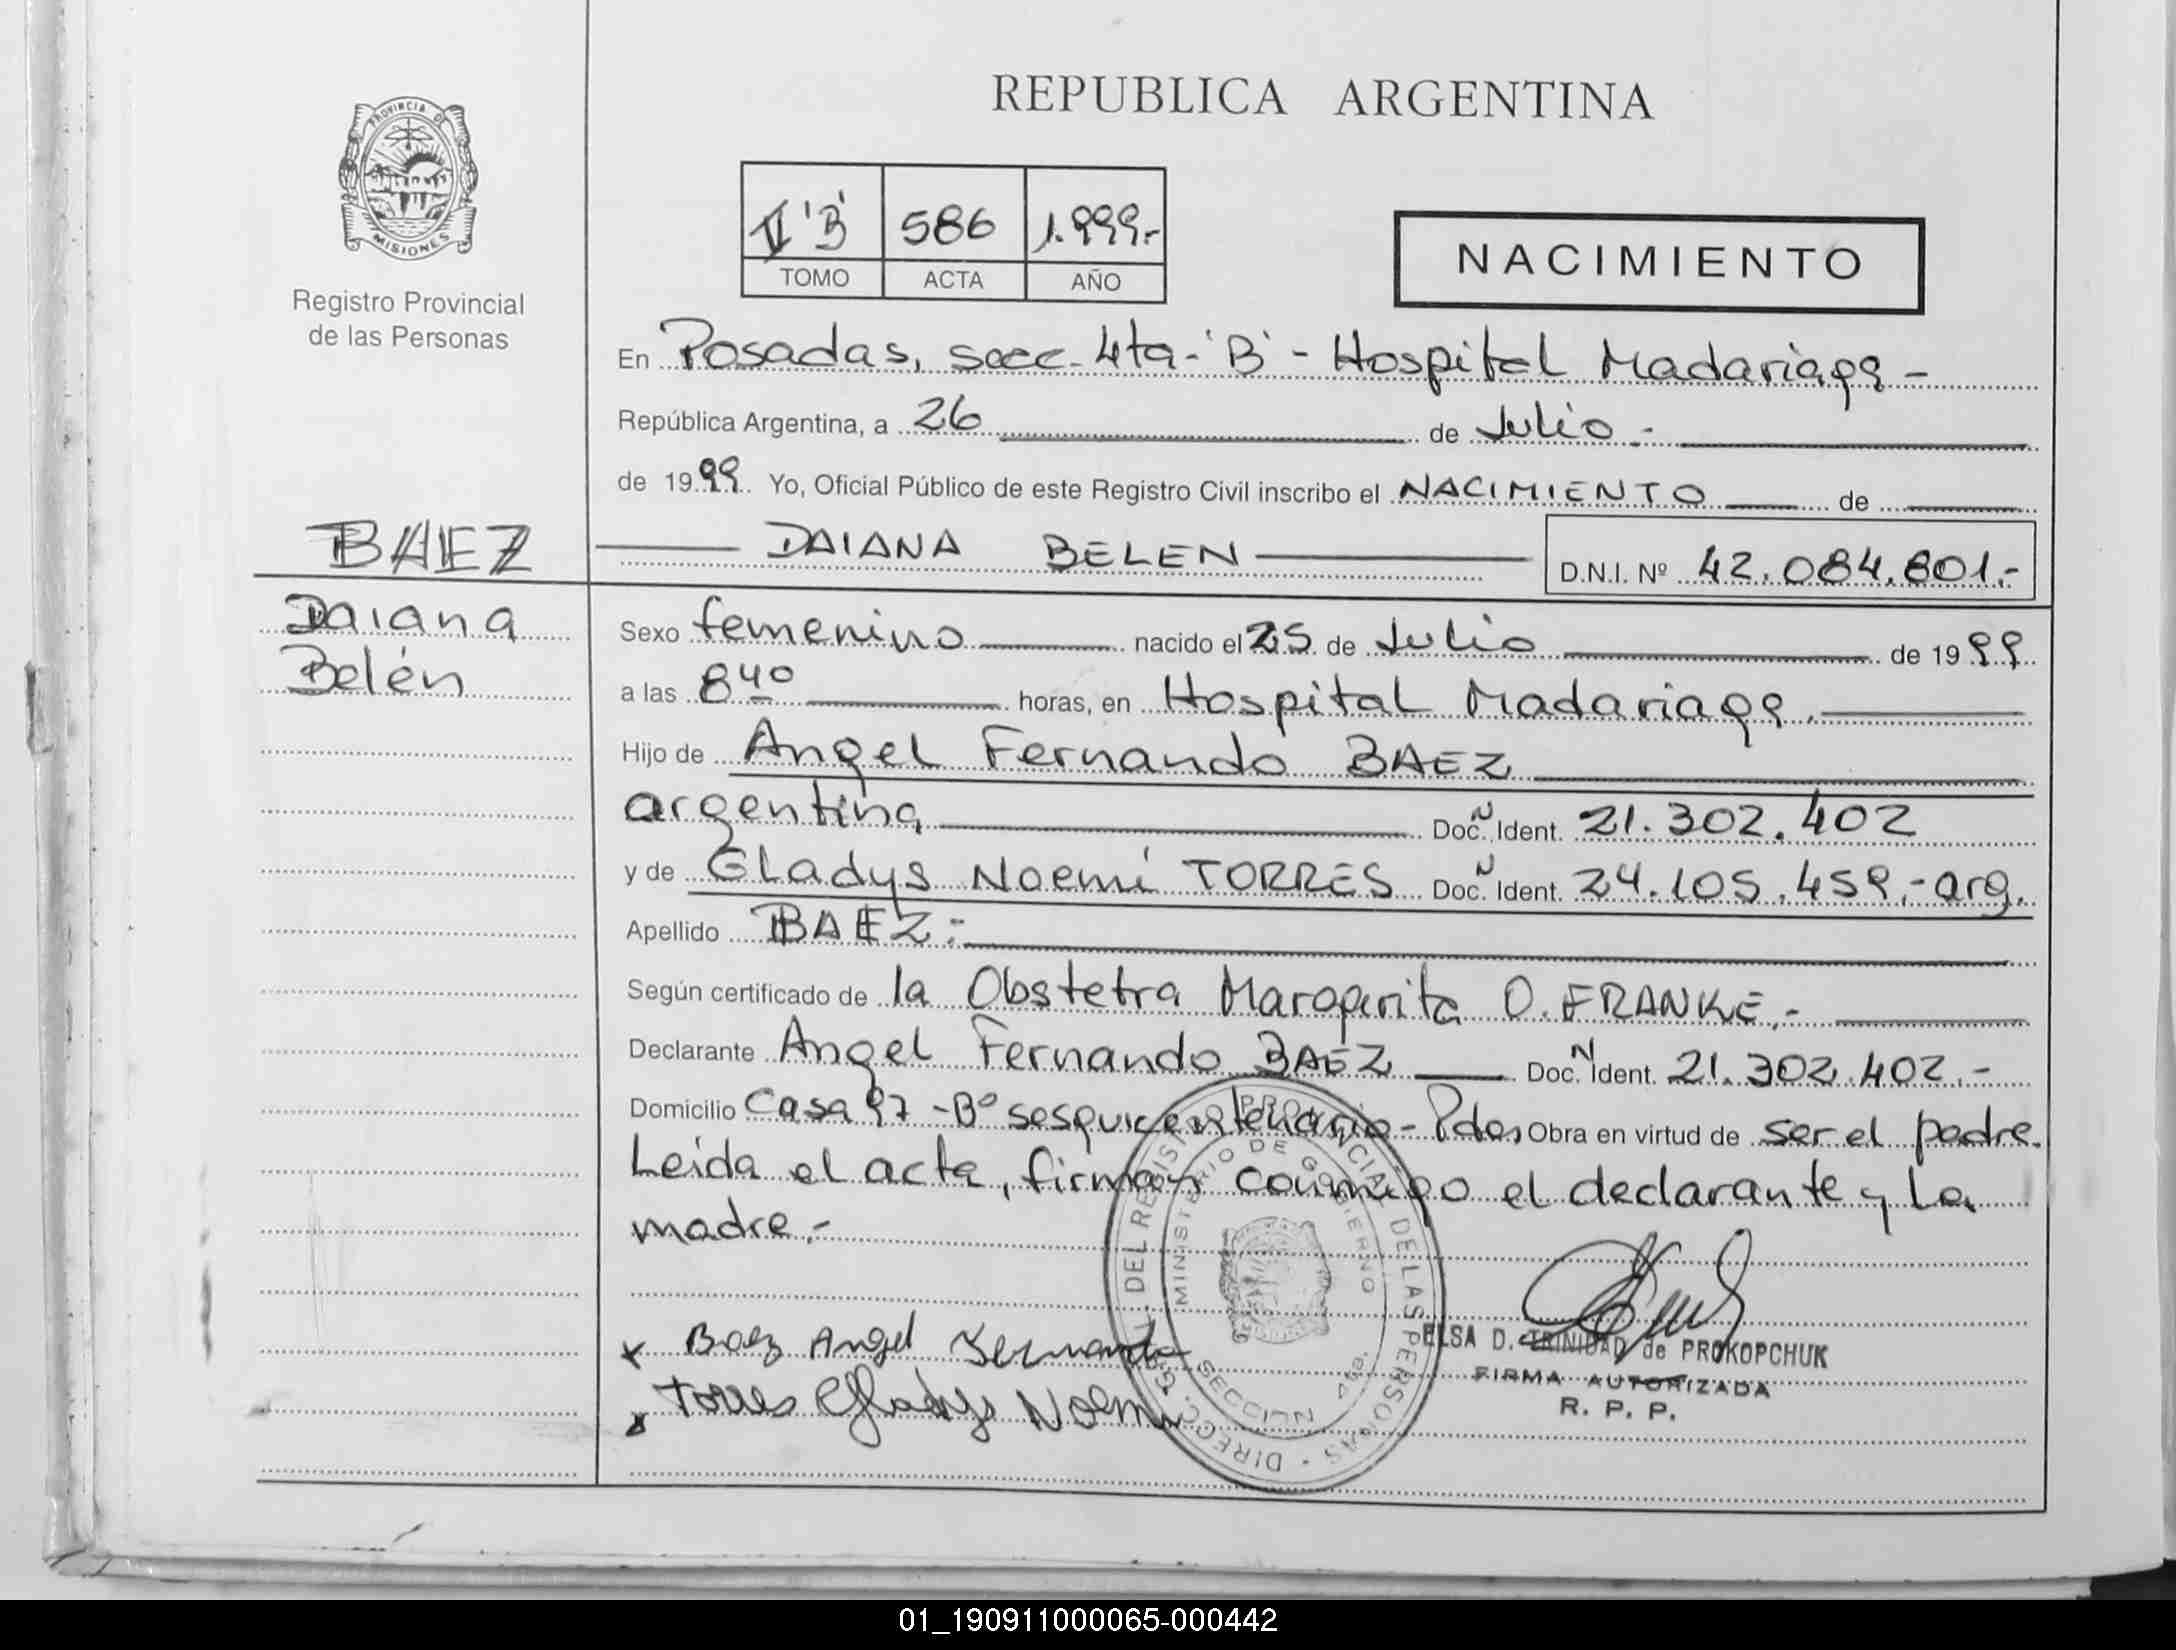 REPUBLICA ARGENTINA
PROVINCIA DE
MISIONES
Registro Provincial
de las Personas
II 'B' 586 1.999.-
TOMO ACTA AÑO
NACIMIENTO
En Posadas, secc. 4ta - 'B' - Hospital Madariaga -
República Argentina, a 26 de Julio.-
de 1999 Yo, Oficial Público de este Registro Civil inscribo el NACIMIENTO de
BAEZ
DAIANA BELEN D.N.I. Nº 42.084.801.-
Daiana
Belén
Sexo femenino nacido el 25 de Julio de 1999
a las 8 40 horas, en Hospital Madariaga.
Hijo de Angel Fernando BAEZ
argentina Doc. N Ident. 21.302.402
y de Gladys Noemí TORRES Doc. N Ident. 24.105.459.- arg.
Apellido BAEZ.-
Según certificado de la Obstetra Margarita O. FRANKE.-
Declarante Angel Fernando BAEZ Doc. N Ident. 21.302.402.-
Domicilio Casa 97 - Bº sesquicentenario - Pdas, Obra en virtud de ser el padre.
Leida el acta, firman conmigo el declarante y la
madre.-
DIRECC. GRAL. DEL REGISTRO PROVINCIAL DE LAS PERSONAS
MINISTERIO DE GOBIERNO
SECCION 4ta.
x Baez Angel Fernando
x Torres Gladys Noemi
ELSA D. TRINIDAD de PROKOPCHUK
FIRMA AUTORIZADA
R. P. P.
01_190911000065-000442